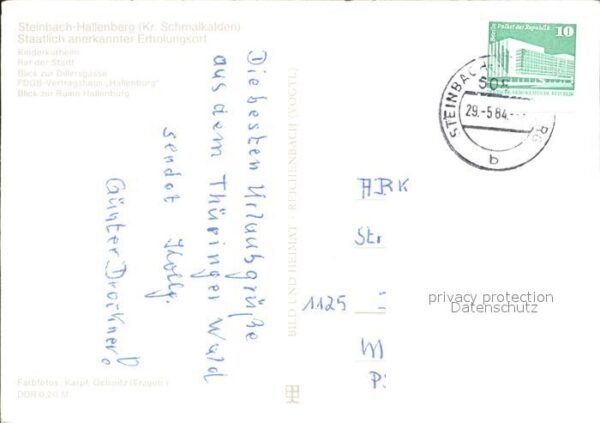 Steinbach-Hallenberg (Kr. Schmalkalden)
Staatlich anerkannter Erholungsort
Kinderkurheim
Rat der Stadt
Blick zur Dillersgasse
FDGB-Vertragshaus „Hallenburg"
Blick zur Ruine Hallenburg
Die besten Urlaubsgrüße
aus dem Thüringer Wald
sendet Kollg.
Günter
Farbfotos: Karpf, Gelenitz (Erzgeb.)
DDR 0,20 M
BILD UND HEIMAT REICHENBACH (VOGTL)
Palast der Republik
10
STEINBACH
29.-5.84.
b
ABK
Str
1125
M
P:
privacy protection
Datenschutz